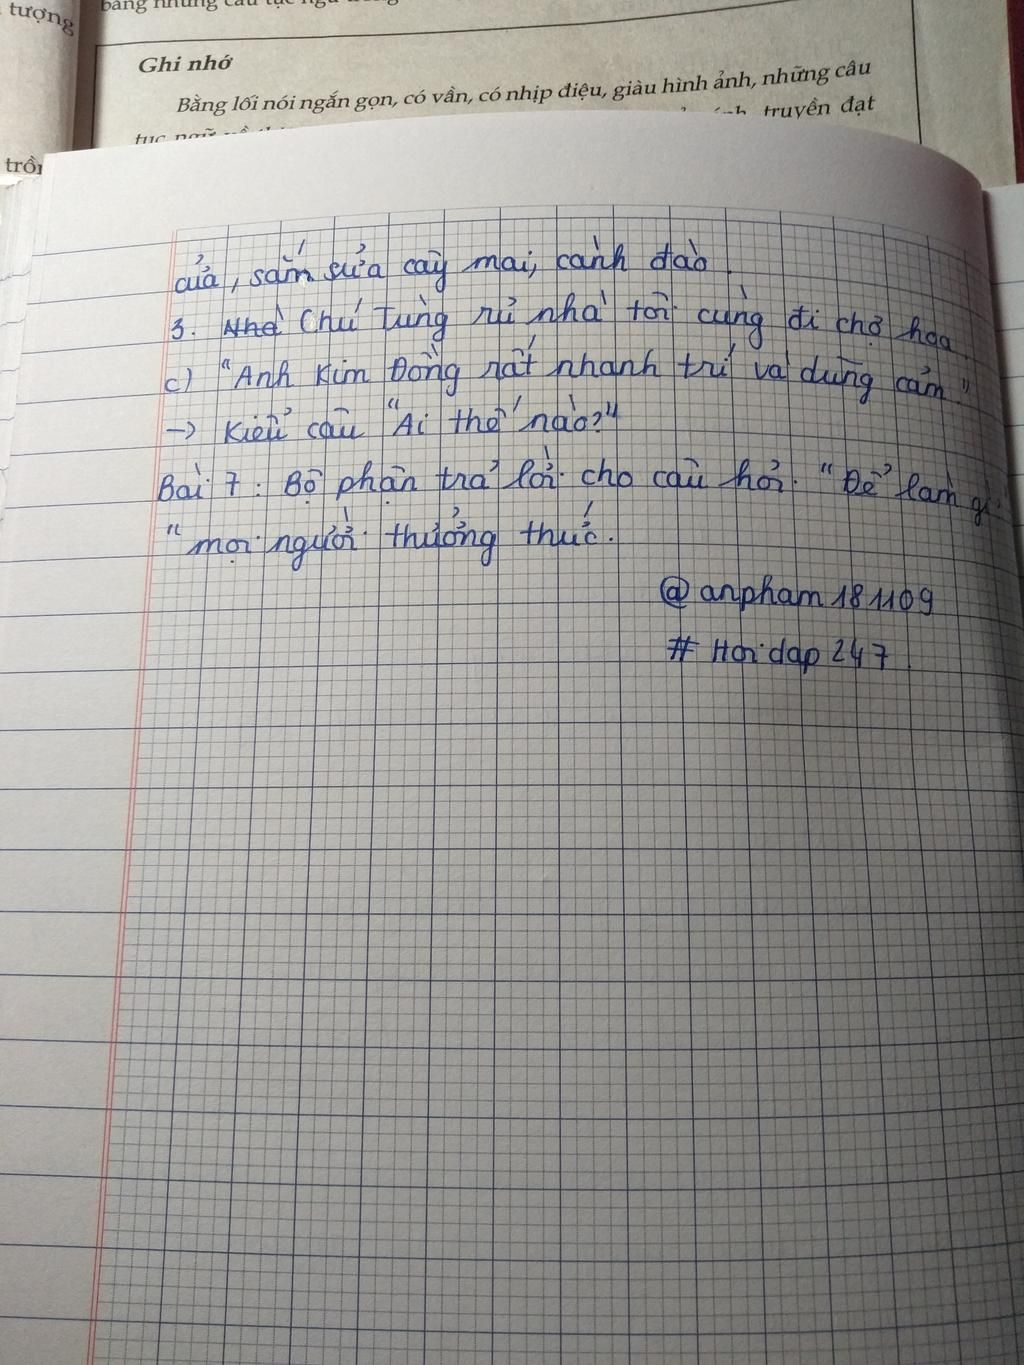 tượng
bằng những câu tục ngữ
Ghi nhớ
Bằng lối nói ngắn gọn, có vần, có nhịp điệu, giàu hình ảnh, những câu
tục ngữ về truyền đạt
trồn
cửa, sắm sửa cây mai, cành đào.
3. Nhà Chú Tùng rủ nhà tôi cùng đi chợ hoa
c) "Anh Kim Đồng rất nhanh trí và dũng cảm"
→ Kiểu câu "Ai thế nào?"
Bài 7: Bộ phận trả lời cho câu hỏi "Để làm gì
"mọi người thưởng thức.
@anpham181109
# Hoidap247